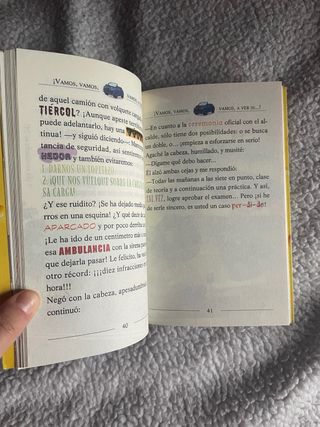 ¡VAMOS, VAMOS,
de aquel camión con volquete carga
TIÉRCOL? ¡Aunque apeste terrible
puede adelantarlo, hay una
tinua! —y siguió diciendo—:
tancia de seguridad, así sentiremos
HEDOR y también evitaremos:
1: DARNOS UN TOPETAZO
2: ¡QUE NOS VUELQUE SOBRE LA CABEZA
SU CARGA!
¿Y ese ruidito? ¿Se ha dejado
rros en una esquina! ¿Y qué
APARCADO y por poco derriba
¡Le ha ido de un centímetro más
esa AMBULANCIA con la sirena
que dejarla pasar! Le felicito, ha
otro récord: ¡¡¡diez infracciones
hora!!!
Negó con la cabeza, apesadumbrado
continuó:
40
¡VAMOS, VAMOS, VAMOS, A VER SI...!
—En cuanto a la ceremonia oficial con el al-
calde, sólo tiene dos posibilidades: o se busca
un doble, o... ¡empieza a esforzarse en serio!
Agaché la cabeza, humillado, y musité:
—Dígame qué debo hacer...
Él alzó ambas cejas y me respondió:
—Todas las mañanas a las siete en punto, clase
de teoría y a continuación una práctica. Y así,
TAL VEZ, logre aprobar el examen... Pero ¡si he
de serle sincero, es usted un caso per-di-do!
41